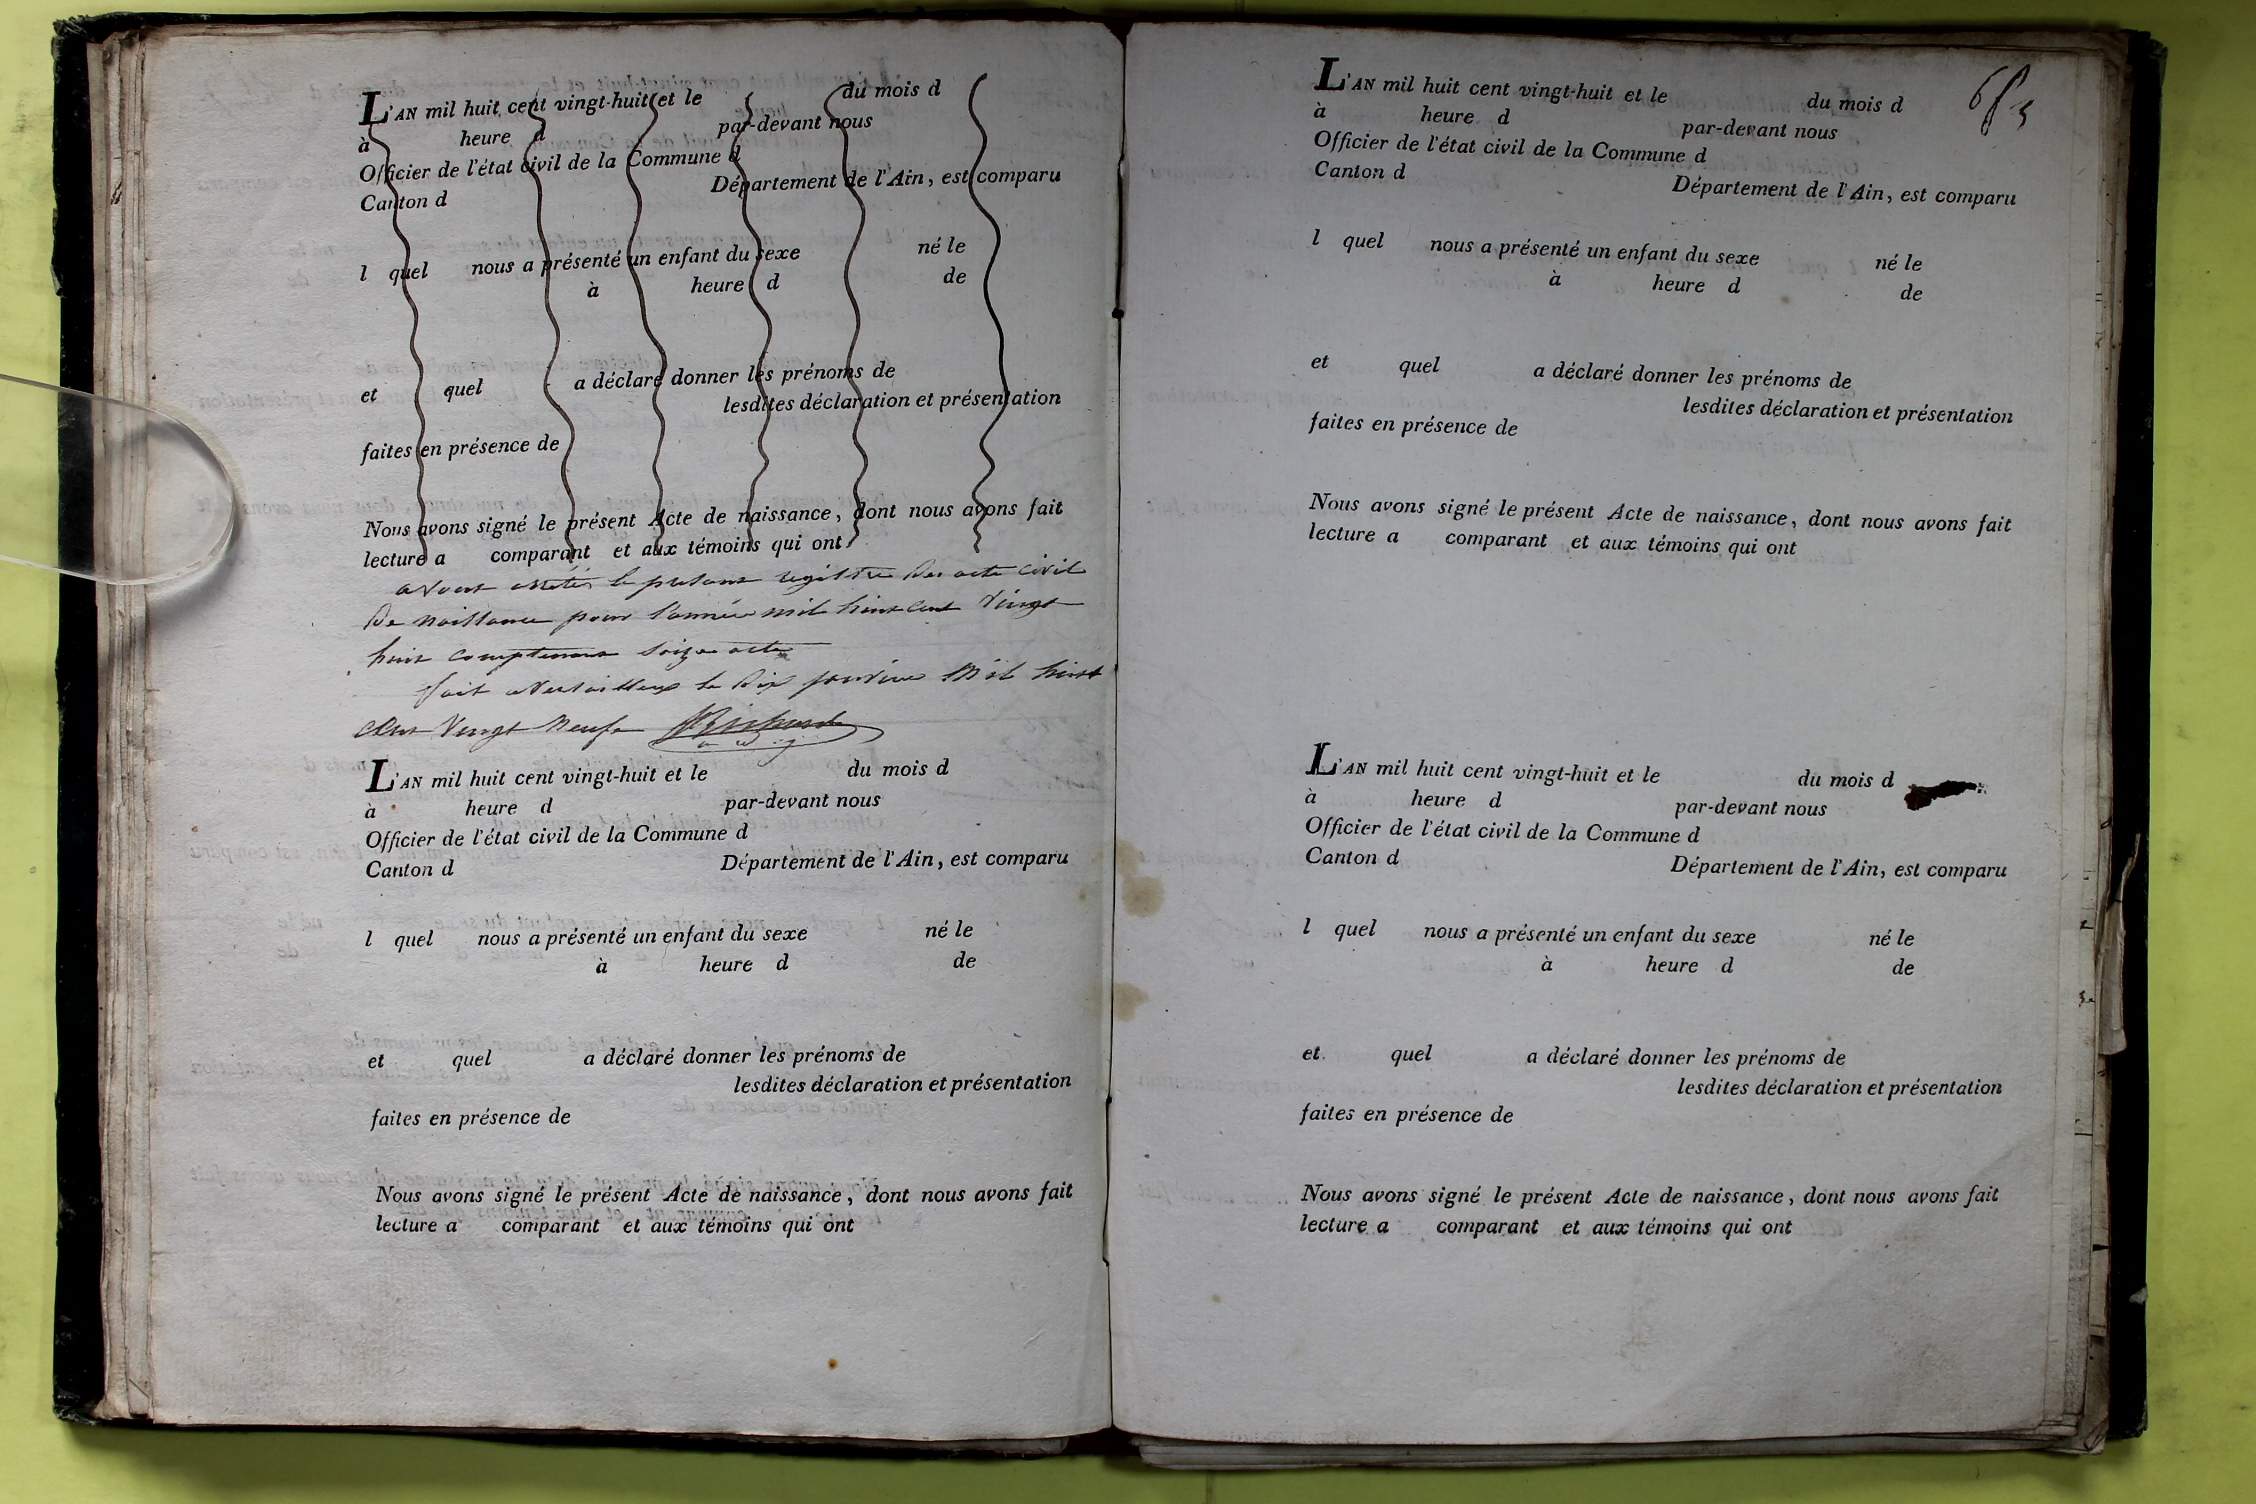 L'AN mil huit cent vingt-huit et le du mois d
à heure d par-devant nous
Officier de l'état civil de la Commune d
Canton d Département de l'Ain, est comparu
l quel nous a présenté un enfant du sexe né le
à heure d de
et quel a déclaré donner les prénoms de
lesdites déclaration et présentation
faites en présence de
Nous avons signé le présent Acte de naissance, dont nous avons fait
lecture a comparant et aux témoins qui ont
le present registre des acte civil
de naissance pour l'année mil huit cent vingt
huit contenant seize acte
fait a Versailleux le dix janvier mil huit
cent vingt neuf
L'AN mil huit cent vingt-huit et le du mois d
à heure d par-devant nous
Officier de l'état civil de la Commune d
Canton d Département de l'Ain, est comparu
l quel nous a présenté un enfant du sexe né le
à heure d de
et quel a déclaré donner les prénoms de
lesdites déclaration et présentation
faites en présence de
Nous avons signé le présent Acte de naissance, dont nous avons fait
lecture a comparant et aux témoins qui ont
L'AN mil huit cent vingt-huit et le du mois d
à heure d par-devant nous
Officier de l'état civil de la Commune d
Canton d Département de l'Ain, est comparu
l quel nous a présenté un enfant du sexe né le
à heure d de
et quel a déclaré donner les prénoms de
lesdites déclaration et présentation
faites en présence de
Nous avons signé le présent Acte de naissance, dont nous avons fait
lecture a comparant et aux témoins qui ont
L'AN mil huit cent vingt-huit et le du mois d
à heure d par-devant nous
Officier de l'état civil de la Commune d
Canton d Département de l'Ain, est comparu
l quel nous a présenté un enfant du sexe né le
à heure d de
et quel a déclaré donner les prénoms de
lesdites déclaration et présentation
faites en présence de
Nous avons signé le présent Acte de naissance, dont nous avons fait
lecture a comparant et aux témoins qui ont